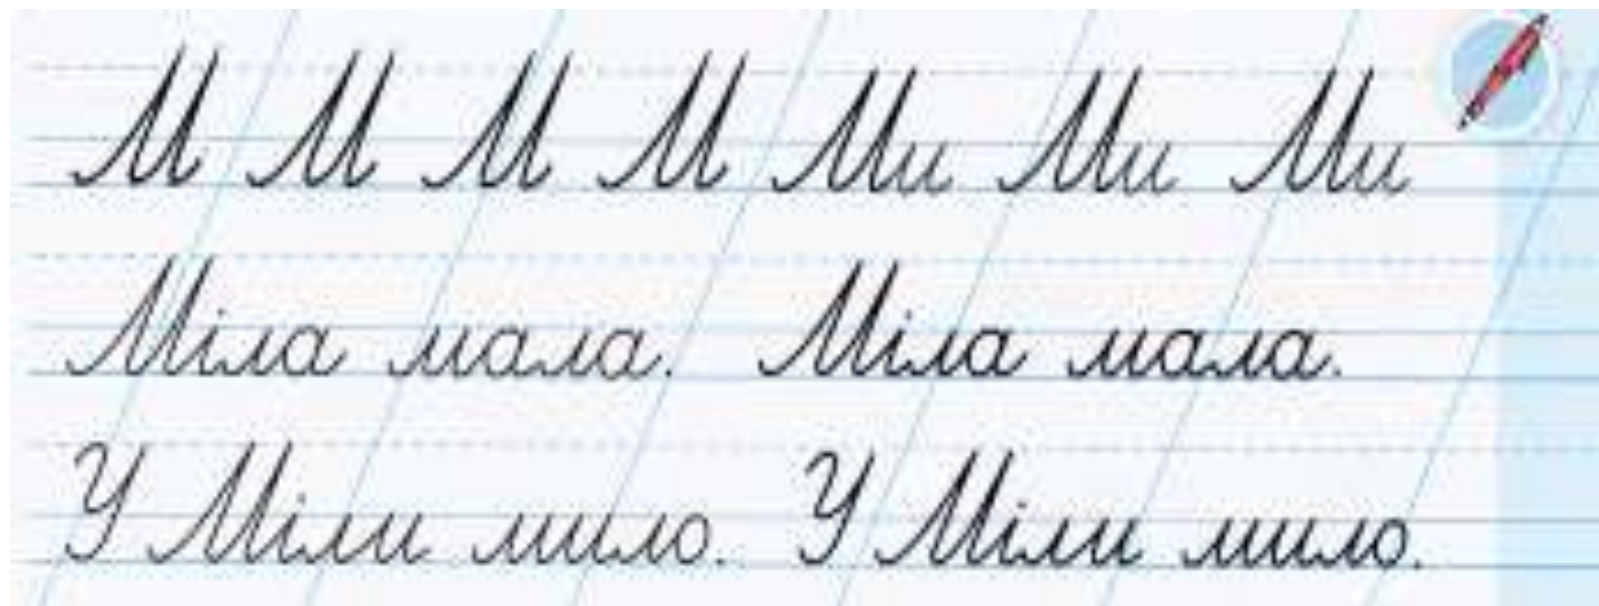 М М М М Ми Ми Ми
Міла мала. Міла мала.
У Міли мило. У Міли мило.